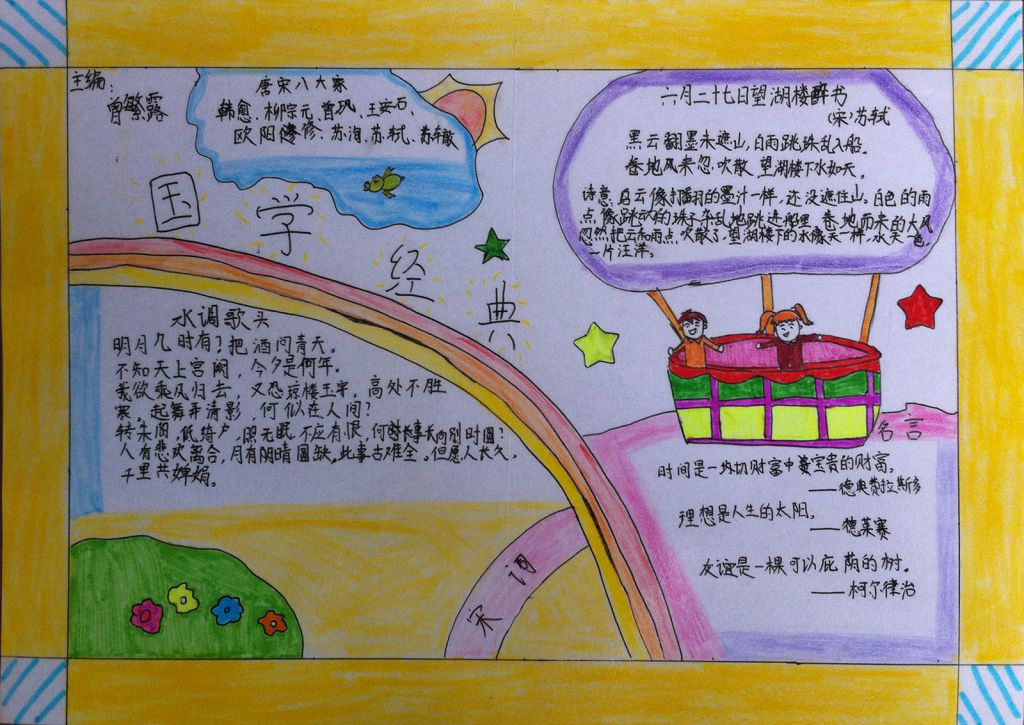 主编:
曾繁露
唐宋八大家
韩愈、柳宗元、曾巩、王安石
欧阳修、苏洵、苏轼、苏辙
国学经典
六月二十七日望湖楼醉书
(宋)苏轼
黑云翻墨未遮山,白雨跳珠乱入船。
卷地风来忽吹散,望湖楼下水如天。
诗意:乌云像打翻的墨汁一样,还没遮住山。白色的雨
点像跳动的珠子,乱地跳进船里。卷地而来的大风
忽然把云和雨点吹散了,望湖楼下的水像天一样,水天一色,
一片汪洋。
水调歌头
明月几时有?把酒问青天。
不知天上宫阙,今夕是何年。
我欲乘风归去,又恐琼楼玉宇,高处不胜
寒。起舞弄清影,何似在人间?
转朱阁,低绮户,照无眠。不应有恨,何事长向别时圆?
人有悲欢离合,月有阴晴圆缺。此事古难全。但愿人长久,
千里共婵娟。
宋词
名言
时间是一切财富中最宝贵的财富。
——德奥费拉斯多
理想是人生的太阳。
——德莱赛
友谊是一棵可以庇荫的树。
——柯尔律治